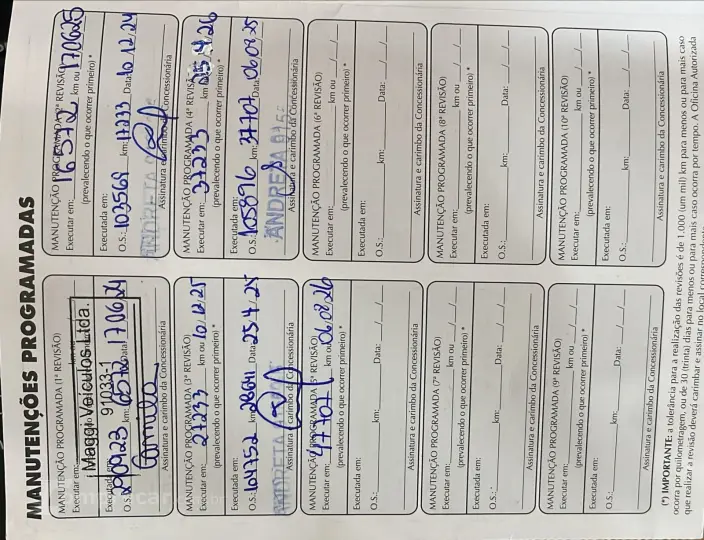 MANUTENÇÕES PROGRAMADAS
MANUTENÇÃO PROGRAMADA (1ª REVISÃO)
Executar em:
Maggi Veículos Ltda.
91033-1
Executada em:
O.S.: 290923 km: Data: 17/06/24
Camilla
Assinatura e carimbo da Concessionária
MANUTENÇÃO PROGRAMADA (2ª REVISÃO)
Executar em: 16372 km ou 17/06/25
(prevalecendo o que ocorrer primeiro) *
Executada em:
O.S.: 103569 km: 17233 Data: 10/12/24
ANDRETA
Assinatura e carimbo da Concessionária
MANUTENÇÃO PROGRAMADA (3ª REVISÃO)
Executar em: 27233 km ou 10/12/25
(prevalecendo o que ocorrer primeiro) *
Executada em:
O.S.: 104752 km: Data: 25/4/25
ANDRETA
Assinatura e carimbo da Concessionária
MANUTENÇÃO PROGRAMADA (4ª REVISÃO)
Executar em: 37233 km ou 25/4/26
(prevalecendo o que ocorrer primeiro) *
Executada em:
O.S.: 105896 km: 37707 Data: 06/09/25
ANDRETA
Assinatura e carimbo da Concessionária
MANUTENÇÃO PROGRAMADA (5ª REVISÃO)
Executar em: 47707 km ou 06/02/26
(prevalecendo o que ocorrer primeiro) *
Executada em:
O.S.: km: Data: / /
Assinatura e carimbo da Concessionária
MANUTENÇÃO PROGRAMADA (6ª REVISÃO)
Executar em: km ou / /
(prevalecendo o que ocorrer primeiro) *
Executada em:
O.S.: km: Data: / /
Assinatura e carimbo da Concessionária
MANUTENÇÃO PROGRAMADA (7ª REVISÃO)
Executar em: km ou / /
(prevalecendo o que ocorrer primeiro) *
Executada em:
O.S.: km: Data: / /
Assinatura e carimbo da Concessionária
MANUTENÇÃO PROGRAMADA (8ª REVISÃO)
Executar em: km ou / /
(prevalecendo o que ocorrer primeiro) *
Executada em:
O.S.: km: Data: / /
Assinatura e carimbo da Concessionária
MANUTENÇÃO PROGRAMADA (9ª REVISÃO)
Executar em: km ou / /
(prevalecendo o que ocorrer primeiro) *
Executada em:
O.S.: km: Data: / /
Assinatura e carimbo da Concessionária
MANUTENÇÃO PROGRAMADA (10ª REVISÃO)
Executar em: km ou / /
(prevalecendo o que ocorrer primeiro) *
Executada em:
O.S.: km: Data: / /
Assinatura e carimbo da Concessionária
(*) IMPORTANTE: a tolerância para a realização das revisões é de 1.000 (um mil) km para menos ou para mais caso
ocorra por quilometragem, ou de 30 (trinta) dias para menos ou para mais caso ocorra por tempo. A Oficina Autorizada
que realizar a revisão deverá carimbar e assinar no local correspondente